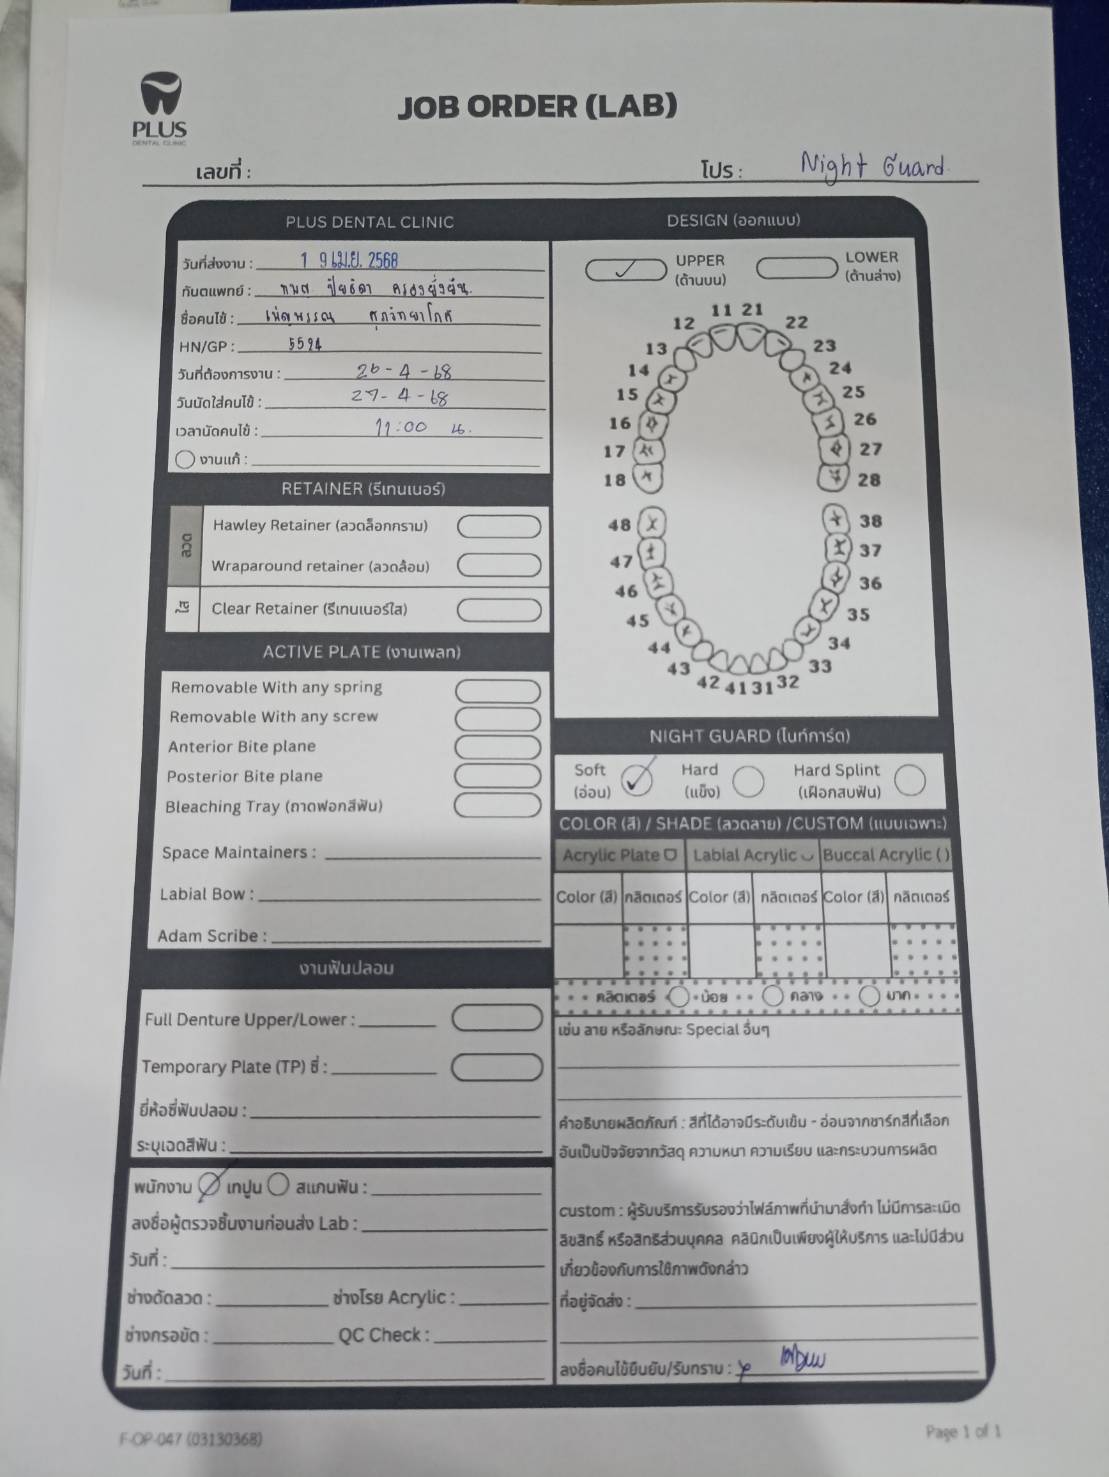 PLUS
DENTAL CLINIC
JOB ORDER (LAB)
เลขที่ :
โปร : Night Guard
PLUS DENTAL CLINIC
วันที่ส่งงาน : 19 เม.ย. 2568
ทันตแพทย์ : ทพต
ชื่อคนไข้ :
HN/GP : 5594
วันที่ต้องการงาน : 26-4-68
วันนัดใส่คนไข้ : 27-4-68
เวลานัดคนไข้ : 11:00 น.
งานแก้ :
RETAINER (รีเทนเนอร์)
ลวด
Hawley Retainer (ลวดล็อกกราม)
Wraparound retainer (ลวดล้อม)
ใส
Clear Retainer (รีเทนเนอร์ใส)
ACTIVE PLATE (งานเพลท)
Removable With any spring
Removable With any screw
Anterior Bite plane
Posterior Bite plane
Bleaching Tray (ถาดฟอกสีฟัน)
Space Maintainers :
Labial Bow :
Adam Scribe :
งานฟันปลอม
Full Denture Upper/Lower :
Temporary Plate (TP) ซี่ :
ยี่ห้อซี่ฟันปลอม :
ระบุเฉดสีฟัน :
พิมพ์งาน เทปูน สแกนฟัน :
ลงชื่อผู้ตรวจชิ้นงานก่อนส่ง Lab :
วันที่ :
ช่างดัดลวด : ช่างโรย Acrylic :
ช่างกรอขัด : QC Check :
วันที่ :
DESIGN (ออกแบบ)
UPPER (ด้านบน) LOWER (ด้านล่าง)
11 21
12 22
13 23
14 24
15 25
16 26
17 27
18 28
48 38
47 37
46 36
45 35
44 34
43 33
42 41 31 32
NIGHT GUARD (ไนท์การ์ด)
Soft (อ่อน) Hard (แข็ง) Hard Splint (เฝือกสบฟัน)
COLOR (สี) / SHADE (ลวดลาย) /CUSTOM (แบบเฉพาะ)
Acrylic Plate Labial Acrylic Buccal Acrylic ( )
Color (สี) กลิตเตอร์ Color (สี) กลิตเตอร์ Color (สี) กลิตเตอร์
กลิตเตอร์ น้อย กลาง มาก
เช่น ลาย หรือลักษณะ Special อื่นๆ
คำอธิบายผลิตภัณฑ์ : สีที่ได้อาจมีระดับเข้ม - อ่อนจากชาร์ทสีที่เลือก
อันเป็นปัจจัยจากวัสดุ ความหนา ความเรียบ และกระบวนการผลิต
custom : ผู้รับบริการรับรองว่าไฟล์ภาพที่นำมาสั่งทำ ไม่มีการละเมิด
ลิขสิทธิ์ หรือสิทธิส่วนบุคคล คลินิกเป็นเพียงผู้ให้บริการ และไม่มีส่วน
เกี่ยวข้องกับการใช้ภาพดังกล่าว
ที่อยู่จัดส่ง :
ลงชื่อคนไข้ยืนยัน/รับทราบ :
F-OP-047 (03130368)
Page 1 of 1